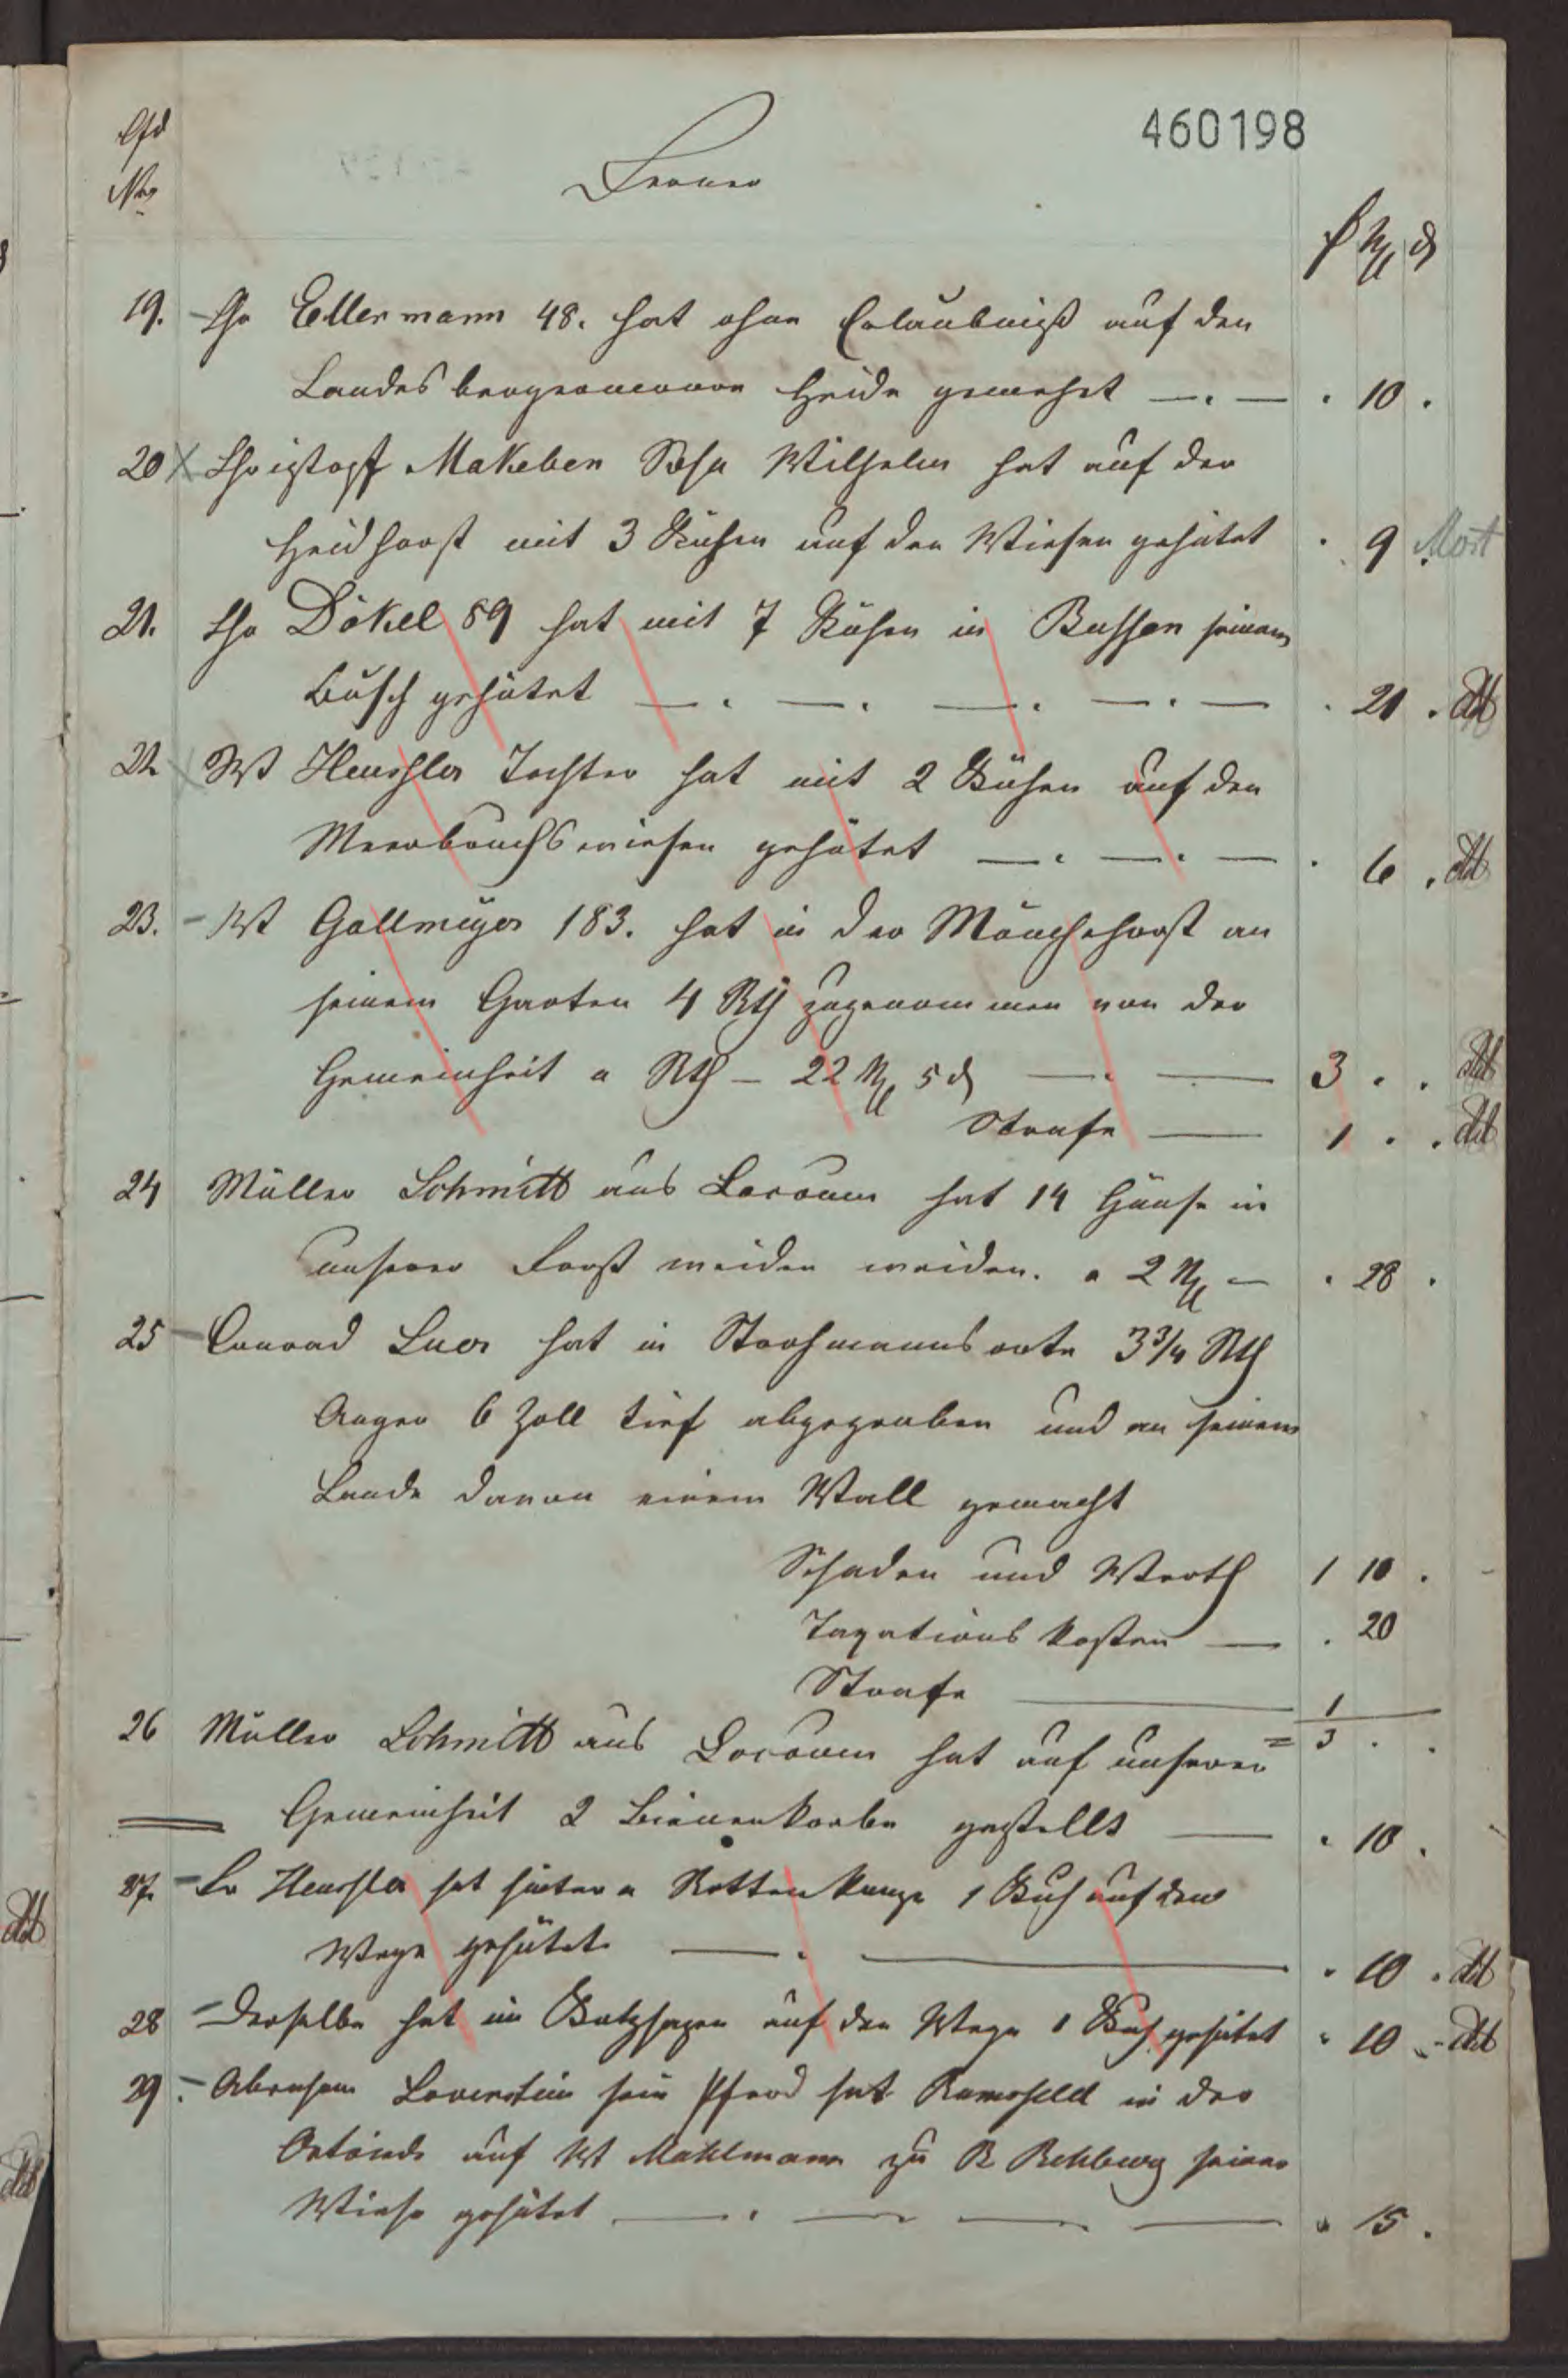 460198
Lfd
Nro
Ferner
₰ Ngr d
19. Chr Ellermann 48. hat ohne Erlaubniß auf den
Landesbergeramoore Heide gemehet — . — . 10 .
20 Christopf Makeben Sohn Wilhelm hat auf der
Heidhorst mit 3 Kühen auf den Wiesen gehütet . 9 Mort
21. Chr Dökel 89 hat mit 7 Kühen in Bussen seinem
Busch gehütet — . — . — . — . — . 21 . dt
22 Wt Heussler Tochter hat mit 2 Kühen auf den
Meerbruchswiesen gehütet — . — . — . 6 . dt
23. Wt Gallmeyer 183. hat in der Mönchehorst an
seinem Garten 4 Rth zugenommen von der
Gemeinheit a Rth – 22 Ngr 5 d — . — 3 . . dt
Strafe — 1 . . dt
24 Müller Schmitt aus Loccum hat 14 Gänse in
unserer Forst weiden weiden. a 2 Ngr – . 28 .
25 Conrad Luer hat in Strohmanns orte 3 3/4 Rth
Anger 6 Zoll tief abgegraben und an seinem
Lande davon einem Wall gemacht
Schaden und Werth 1 10 .
Taxations kosten — . 20
Strafe — 1
= 3 . .
26 Müller Schmitt aus Loccum hat auf unserer
Gemeinheit 2 Bienenkorbe gestellt — . 10 .
27. Hr Heussler hat hinter a Rottenkamp 1 Kuh auf dem
Wege gehütet — . — . 10 . dt
28 Derselbe hat im Butzhagen auf den Wege 1 Kuh gehütet . 10 . dt
29. Abraham Lovenstein sein Pferd hat Ramsfeld in der
auf Wt Mahlmann zu R Rehburg seiner
Wiese gehütet — . — — — . 15 .